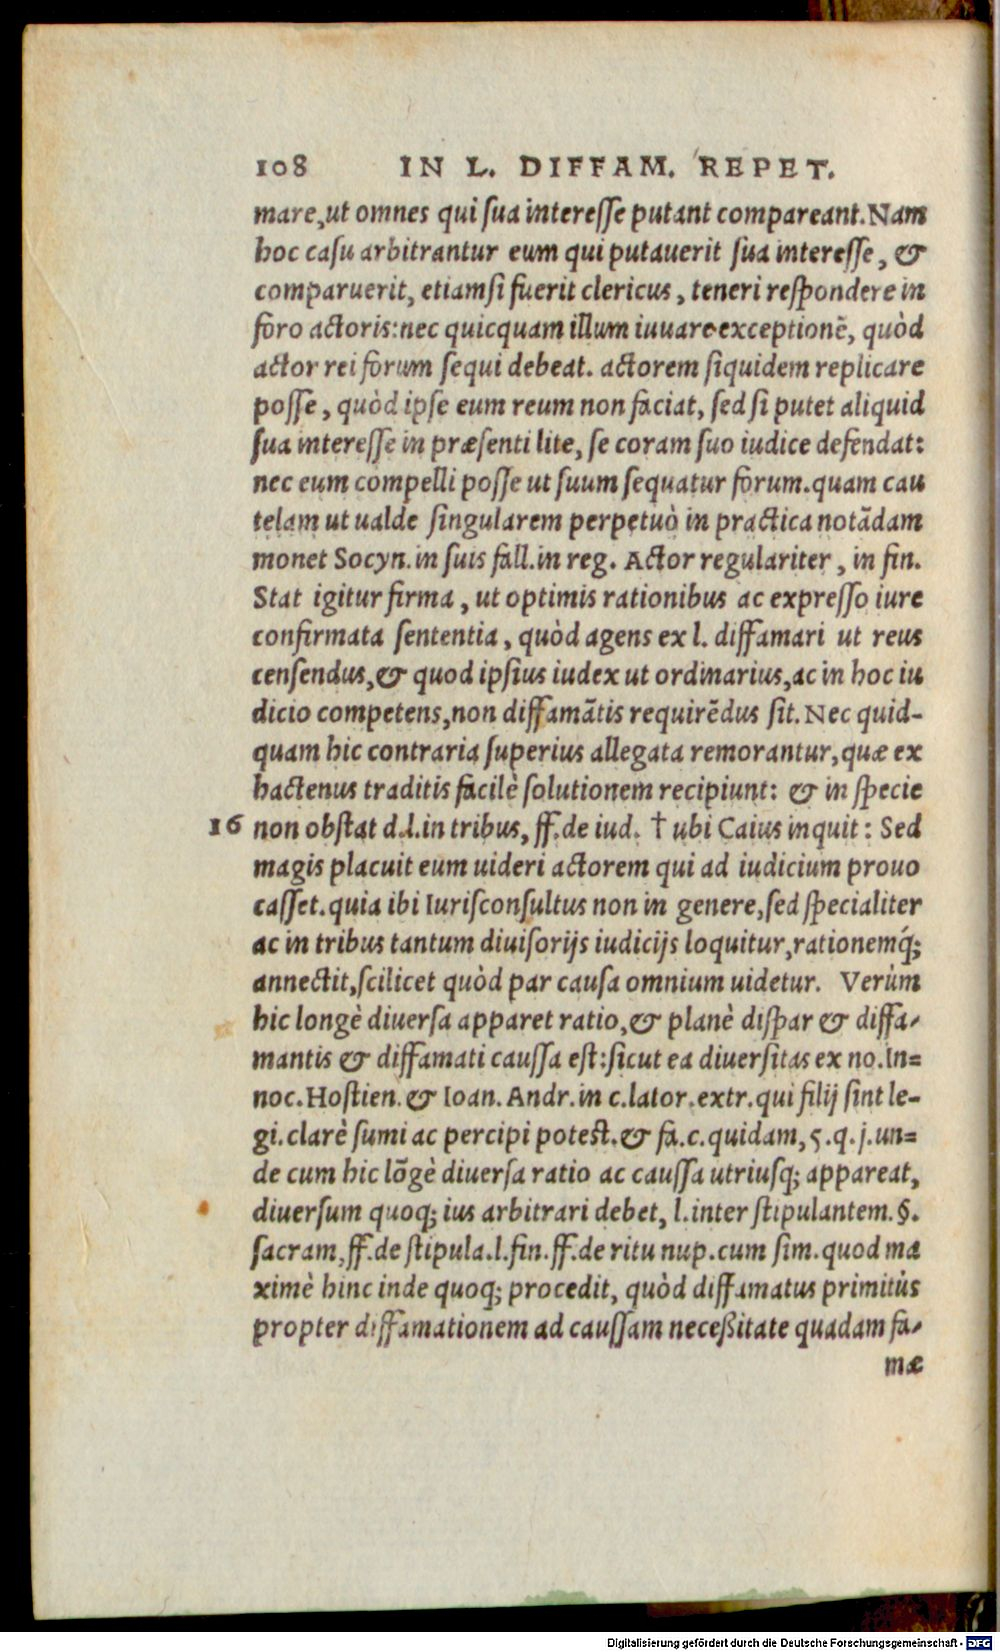 108 IN L. DIFFAM. REPET.
mare, ut omnes qui ſua intereſſe putant compareant. Nam
hoc caſu arbitrantur eum qui putauerit ſua intereſſe, &
comparuerit, etiamſi fuerit clericus, teneri reſpondere in
foro actoris: nec quicquam illum iuuare exceptionē, quòd
actor rei forum ſequi debeat. actorem ſiquidem replicare
poſſe, quòd ipſe eum reum non faciat, ſed ſi putet aliquid
ſua intereſſe in præſenti lite, ſe coram ſuo iudice defendat:
nec eum compelli poſſe ut ſuum ſequatur forum. quam cau
telam ut ualde ſingularem perpetuò in practica notādam
monet Socyn. in ſuis fall. in reg. Actor regulariter, in fin.
Stat igitur firma, ut optimis rationibus ac expreſſo iure
confirmata ſententia, quòd agens ex l. diffamari ut reus
cenſendus, & quod ipſius iudex ut ordinarius, ac in hoc iu
dicio competens, non diffamātis requirēdus ſit. Nec quid-
quam hic contraria ſuperius allegata remorantur, quæ ex
hactenus traditis facilè ſolutionem recipiunt: & in ſpecie
16 non obſtat d.l. in tribus, ff. de iud. † ubi Caius inquit: Sed
magis placuit eum uideri actorem qui ad iudicium prouo
caſſet. quia ibi Iuriſconſultus non in genere, ſed ſpecialiter
ac in tribus tantum diuiſorijs iudicijs loquitur, rationemq́;
annectit, ſcilicet quòd par cauſa omnium uidetur. Verùm
hic longè diuerſa apparet ratio, & planè diſpar & diffa-
mantis & diffamati cauſſa eſt: ſicut ea diuerſitas ex no. In=
noc. Hoſtien. & Ioan. Andr. in c. lator. extr. qui filij ſint le-
gi. clarè ſumi ac percipi poteſt. & fa. c. quidam, 5. q. j. un=
de cum hic lōgè diuerſa ratio ac cauſſa utriuſq; appareat,
diuerſum quoq; ius arbitrari debet, l. inter ſtipulantem. §.
ſacram, ff. de ſtipula. l. fin. ff. de ritu nup. cum ſim. quod ma
ximè hinc inde quoq; procedit, quòd diffamatus primitùs
propter diffamationem ad cauſſam neceßitate quadam fa-
mæ
Digitalisierung gefördert durch die Deutsche Forschungsgemeinschaft - DFG